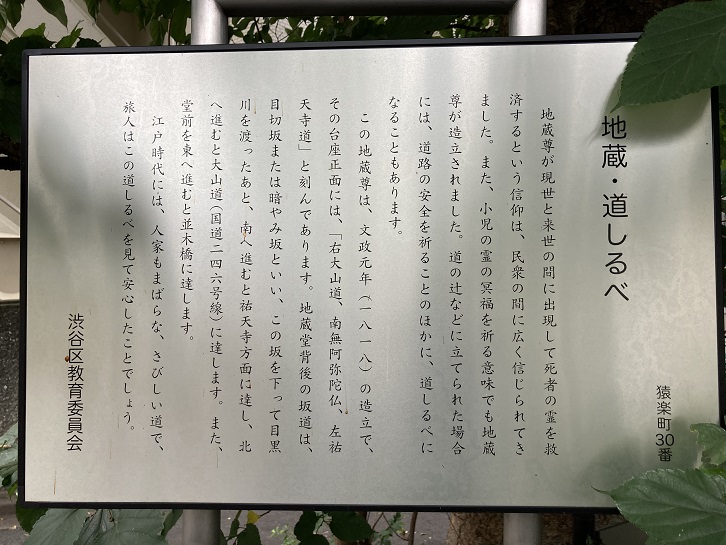 地蔵・道しるべ
猿楽町30番
地蔵尊が現世と来世の間に出現して死者の霊を救
済するという信仰は、民衆の間に広く信じられてき
ました。また、小児の霊の冥福を祈る意味でも地蔵
尊が造立されました。道の辻などに立てられた場合
には、道路の安全を祈ることのほかに、道しるべに
なることもあります。
この地蔵尊は、文政元年（一八一八）の造立で、
その台座正面には、「右大山道、南無阿弥陀仏、左祐
天寺道」と刻んであります。地蔵堂背後の坂道は、
目切坂または暗やみ坂といい、この坂を下って目黒
川を渡ったあと、南へ進むと祐天寺方面に達し、北
へ進むと大山道（国道二四六号線）に達します。また、
堂前を東へ進むと並木橋に達します。
江戸時代には、人家もまばらな、さびしい道で、
旅人はこの道しるべを見て安心したことでしょう。
渋谷区教育委員会